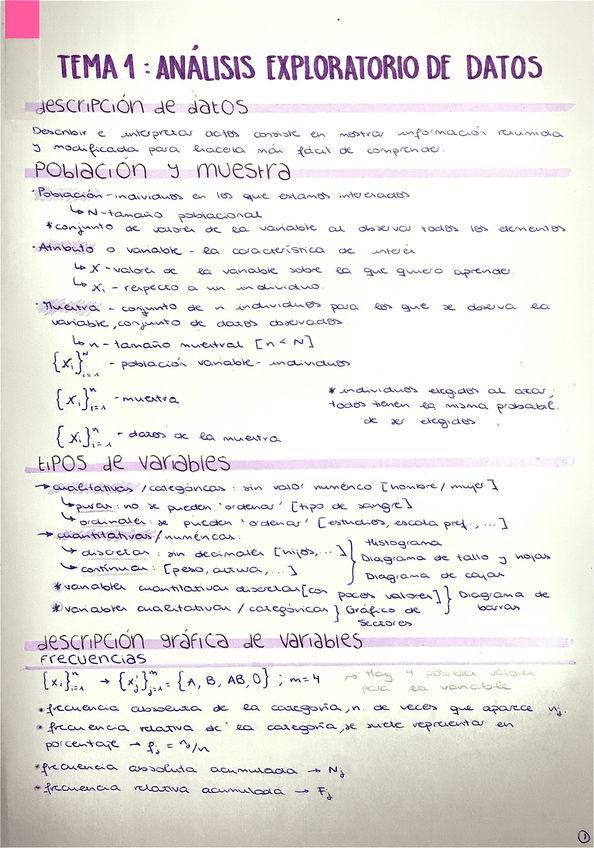 TEMA 1: ANÁLISIS EXPLORATORIO DE DATOS
descripción de datos
Describir e interpretar datos consiste en mostrar información resumida
y modificada para hacerla más fácil de comprender.
Población y muestra
·Población - individuos en los que estamos interesados
↳ N - tamaño poblacional
*conjunto de valores de la variable al observar todos los elementos
·Atributo o variable - la característica de interés
↳ X - valores de la variable sobre la que quiero aprender.
↳ Xi - respecto a un individuo.
·Muestra - conjunto de n individuos para los que se observa la
variable, conjunto de datos observados
↳ n - tamaño muestral [n < N]
{Xi}ᴺi=1 - población variable - individuos
{Xi}ⁿi=1 - muestra
*individuos elegidos al azar;
todos tienen la misma probabil.
de ser elegidos.
{xi}ⁿi=1 - datos de la muestra
tipos de variables
→ cualitativas / categóricas: sin valor numérico [hombre / mujer]
↳ puras: no se pueden 'ordenar' [tipo de sangre]
↳ ordinales: se pueden 'ordenar' [estudios, escala pref., ...]
→ cuantitativas / numéricas:
↳ discretas: sin decimales [hijos, ...]
↳ continuas: [peso, altura, ...]
} Histograma
Diagrama de tallo y hojas
Diagrama de cajas
*variables cuantitativas discretas [con pocos valores]
*variables cualitativas / categóricas
} Diagrama de
barras
} Gráfico de
sectores
descripción gráfica de variables
frecuencias
{xi}ⁿi=1 → {x'j}ᵐj=1 = {A, B, AB, O} ; m=4
→ Hay 4 posibles valores
para la variable
*frecuencia absoluta de la categoría, n. de veces que aparece nj.
*frecuencia relativa de la categoría, se suele representar en
porcentaje → fj = nj/n
*frecuencia absoluta acumulada → Nj
*frecuencia relativa acumulada → Fj
1